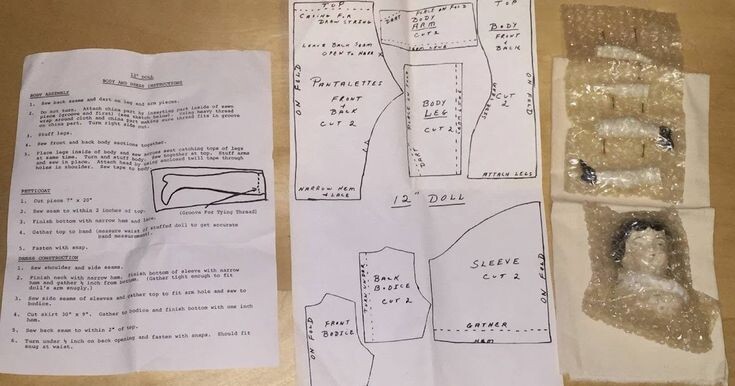 12" DOLL
BODY AND DRESS INSTRUCTIONS
BODY ASSEMBLY
1. Sew back seams and dart on leg and arm pieces.
2. Do not turn. Attach china part by inserting part inside of sewn
piece (groove end first) (see sketch below). Using heavy thread
wrap around cloth and china part making sure thread fits in groove
on china part. Turn right side out.
3. Stuff legs.
4. Sew front and back body sections together.
5. Place legs inside of body and sew across seat catching tops of legs
at same time. Turn and stuff body. Sew together at top. Stuff arms
and sew in place. Attach head by using enclosed twill tape through
holes in shoulder. Sew tape to body.
(Groove For Tying Thread)
PETTICOAT
1. Cut piece 7" x 20"
2. Sew seam to within 2 inches of top.
3. Finish bottom with narrow hem and lace.
4. Gather top to band (measure waist of stuffed doll to get accurate
band measurement).
5. Fasten with snap.
DRESS CONSTRUCTION
1. Sew shoulder and side seams.
2. Finish neck with narrow hem. Finish bottom of sleeve with narrow
hem and gather ½ inch from bottom. (Gather tight enough to fit
doll's arm snugly.)
3. Sew side seams of sleeves and gather top to fit arm hole and sew to
bodice.
4. Cut skirt 30" x 9". Gather to bodice and finish bottom with one inch
hem.
5. Sew back seam to within 2" of top.
6. Turn under ½ inch on back opening and fasten with snaps. Should fit
snug at waist.
TOP
CASING FOR
DRAW STRING
LEAVE BACK SEAM
OPEN TO MARK
X
ON FOLD
PANTALETTES
FRONT
&
BACK
CUT 2
NARROW HEM
& LACE
PLACE ON FOLD
DART
BODY
ARM
CUT 2
BODY
LEG
CUT 2
DART
TOP
BODY
FRONT
&
BACK
CUT
2
ON FOLD
SIDE SEAM
ATTACH LEGS
12" DOLL
ON FOLD
FRONT
BODICE
TURN UNDER
BACK
BODICE
CUT 2
SLEEVE
CUT 2
ON FOLD
GATHER
HEM